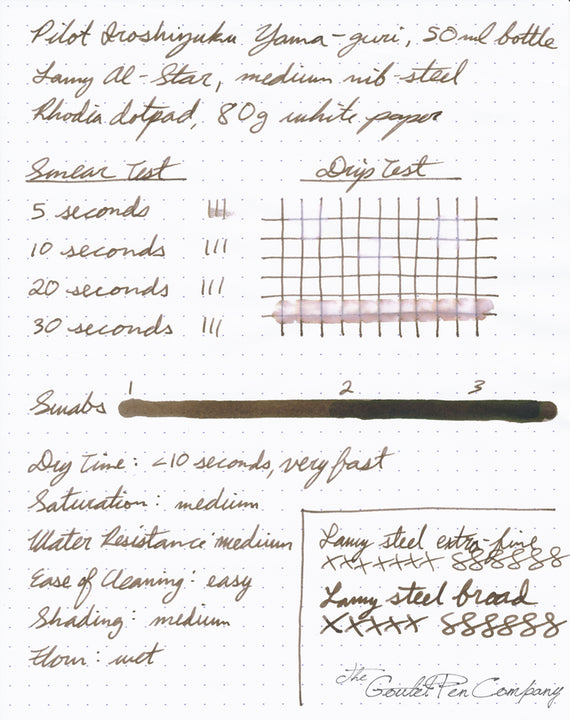 Pilot Iroshizuku Yama-guri, 50ml bottle
Lamy Al-Star, medium nib-steel
Rhodia dotpad, 80g white paper
Smear Test
Drip Test
5 seconds
10 seconds
20 seconds
30 seconds
Swabs 1 2 3
Dry Time: <10 seconds, very fast
Saturation: medium
Water Resistance: medium
Ease of Cleaning: easy
Shading: medium
Flow: wet
Lamy steel extra-fine
xxxxxxx 8888888
Lamy steel broad
xxxxx 8888888
The Goulet Pen Company